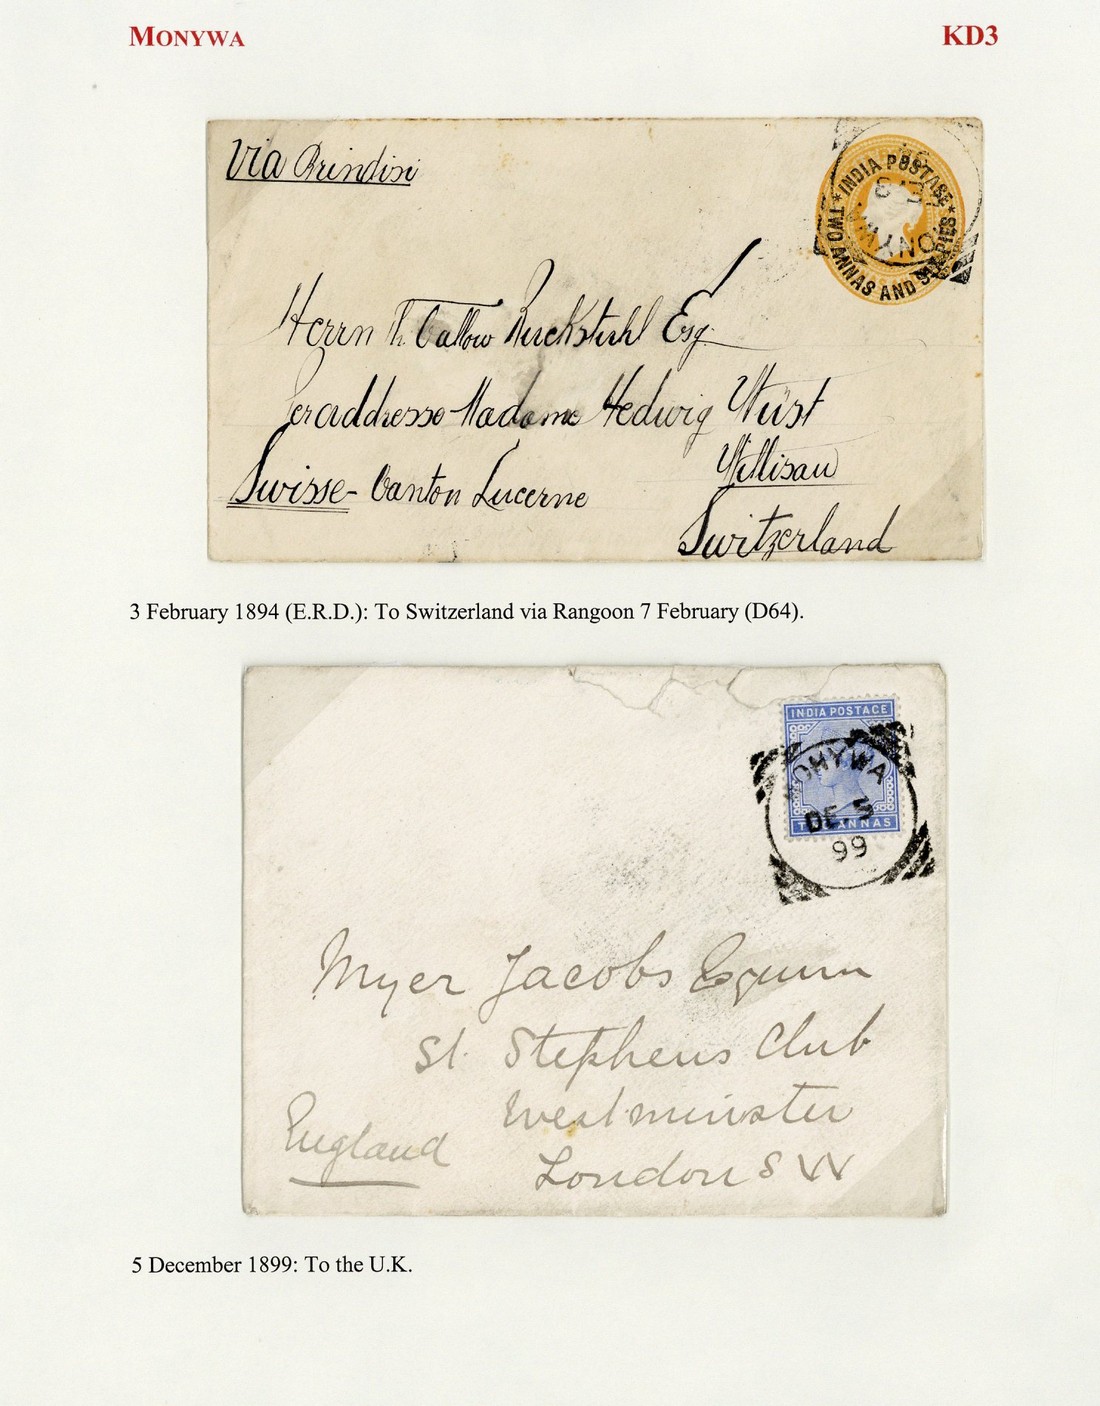 MONYWA KD3
Via Brindisi
INDIA POSTAGE
TWO ANNAS AND SIX PIES
Herrn Th. Cattow Ruckstuhl Esq.
Peraddresse Madame Hedwig Wüst
Willisau
Swisse - Canton Lucerne
Switzerland
3 February 1894 (E.R.D.): To Switzerland via Rangoon 7 February (D64).
INDIA POSTAGE
TWO ANNAS
MONYWA
DE 5
99
Myer Jacobs Esquire
St. Stephens Club
Westminster
England
London S W
5 December 1899: To the U.K.